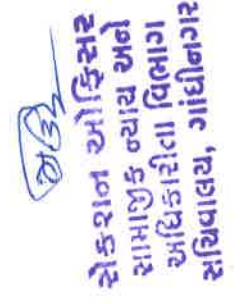 સેકશન ઓફિસર
સામાજીક ન્યાય અને
અધિકારીતા વિભાગ
સચિવાલય, ગાંધીનગર